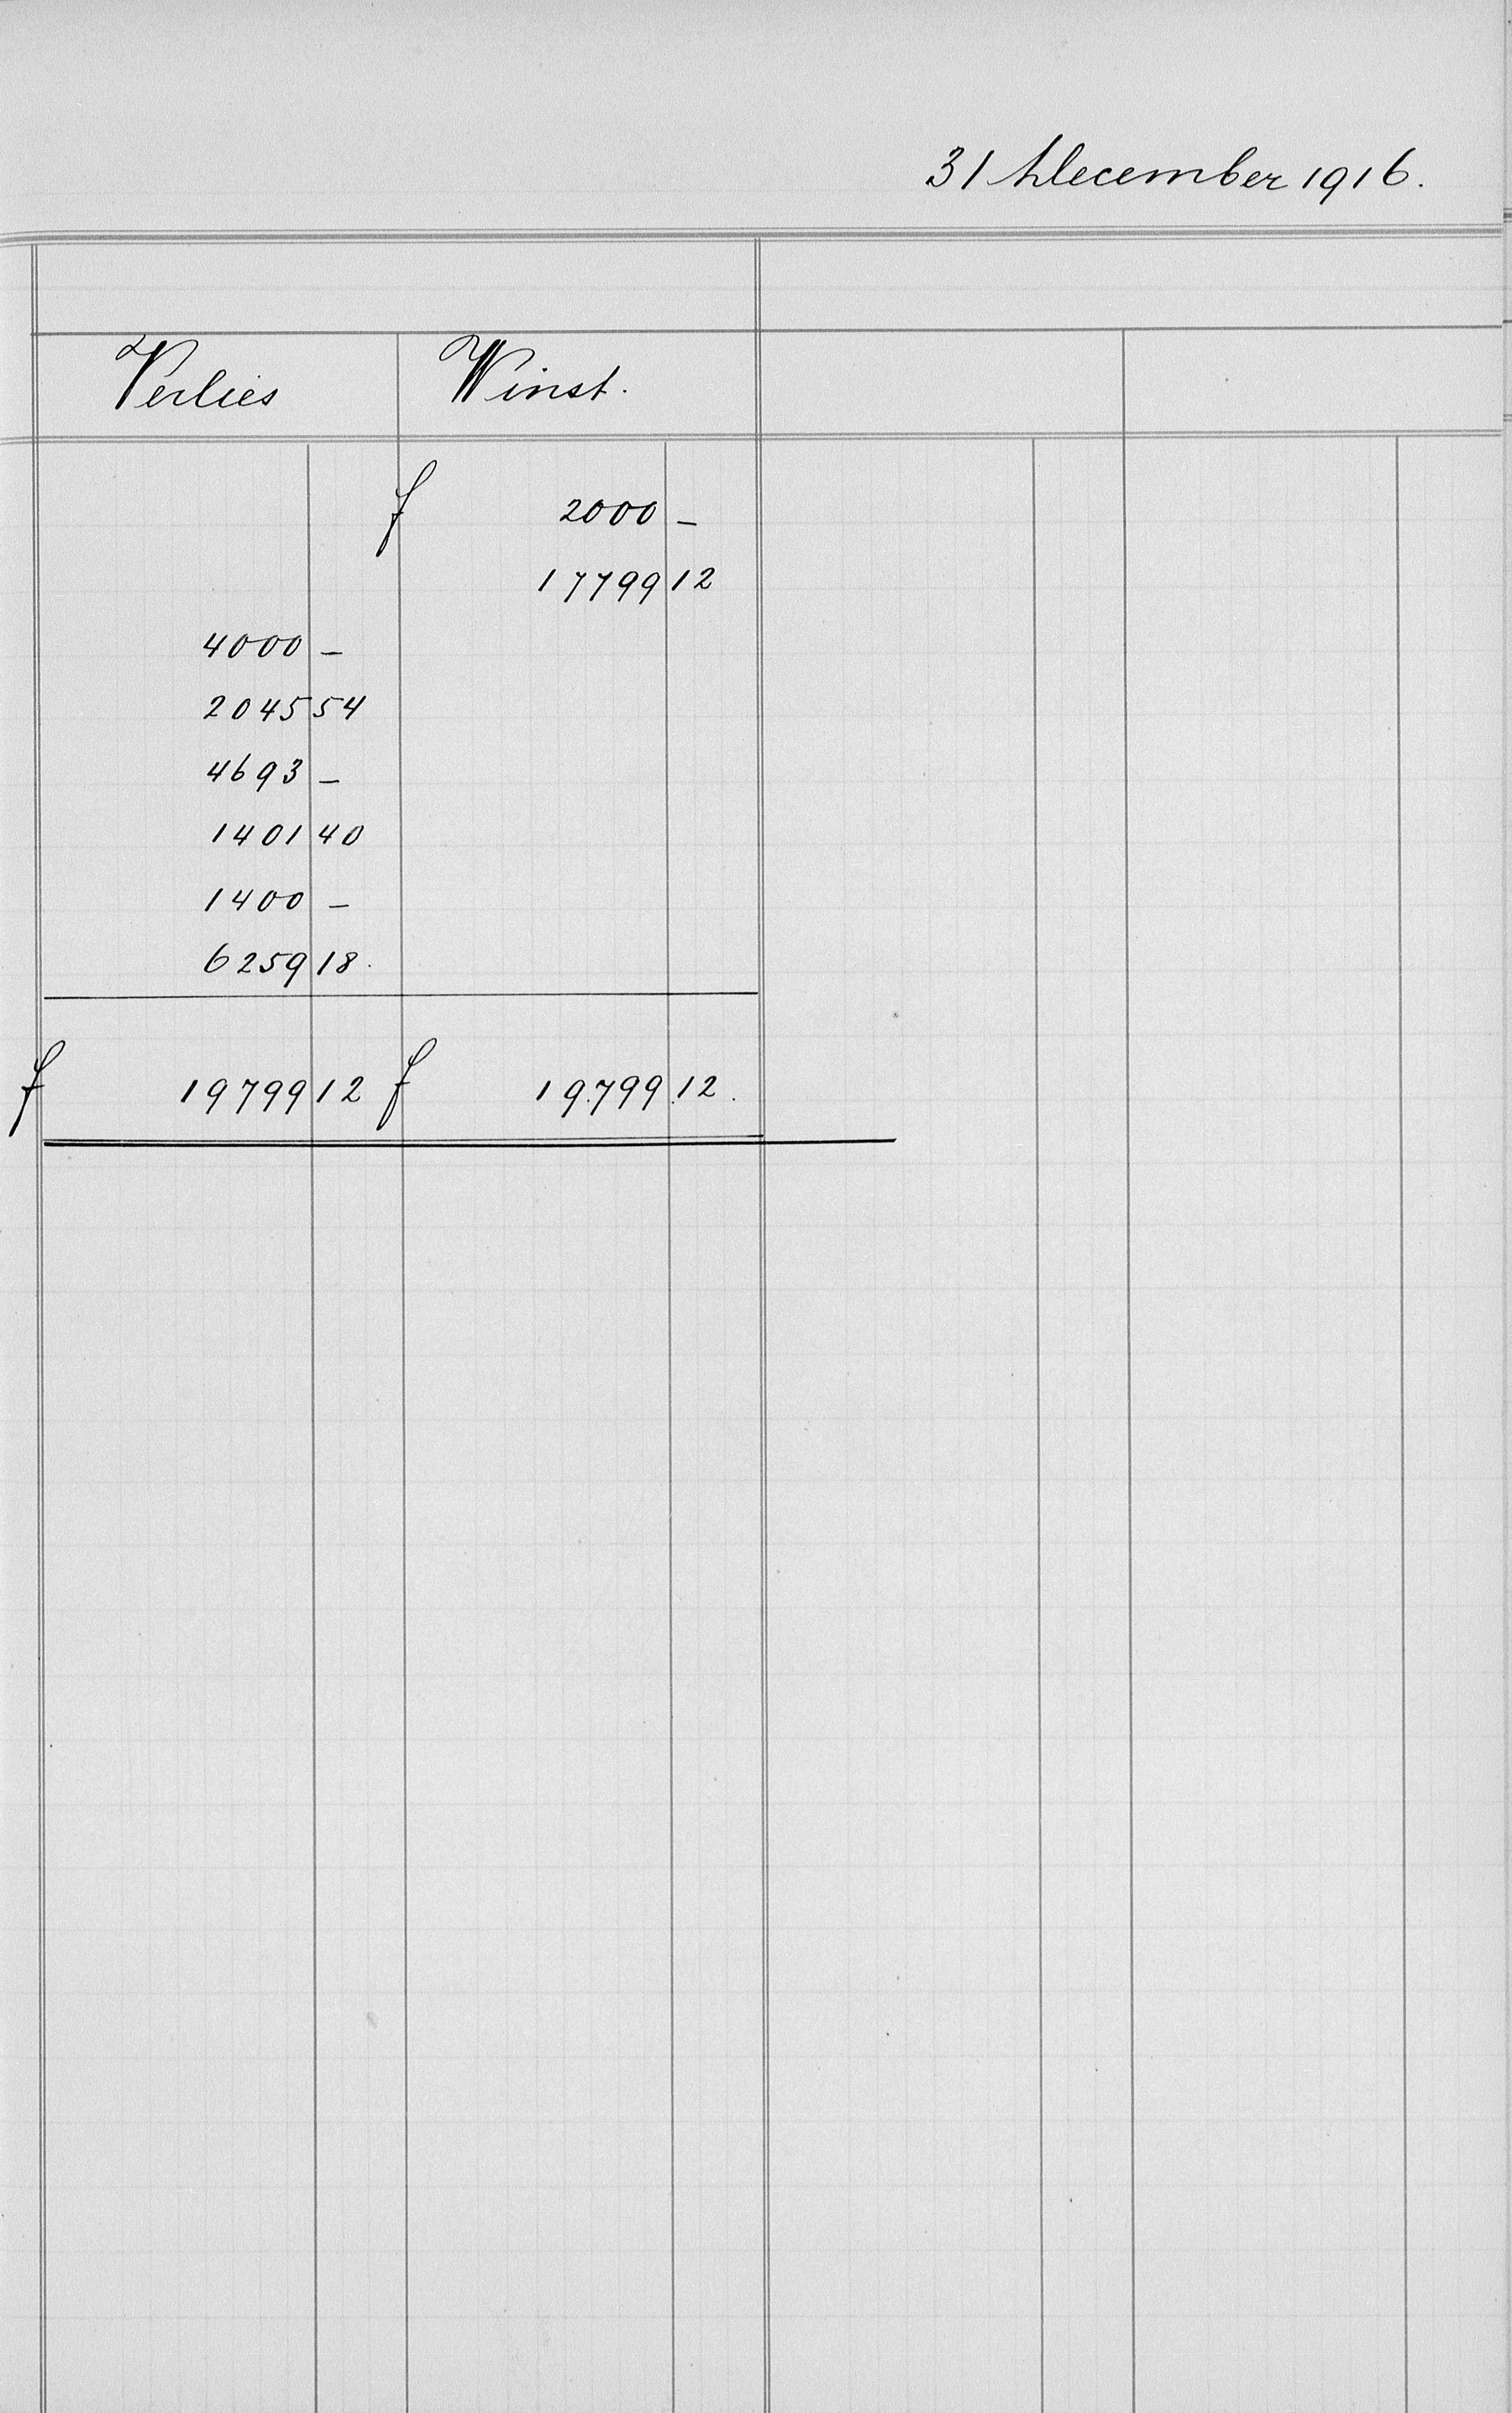 31 December 1916.
Verlies Winst.
f 2000 –
17799 12
4000 –
2045 54
4693 –
1401 40
1400 –
6259 18.
f 19799 12 f 19.799.12.